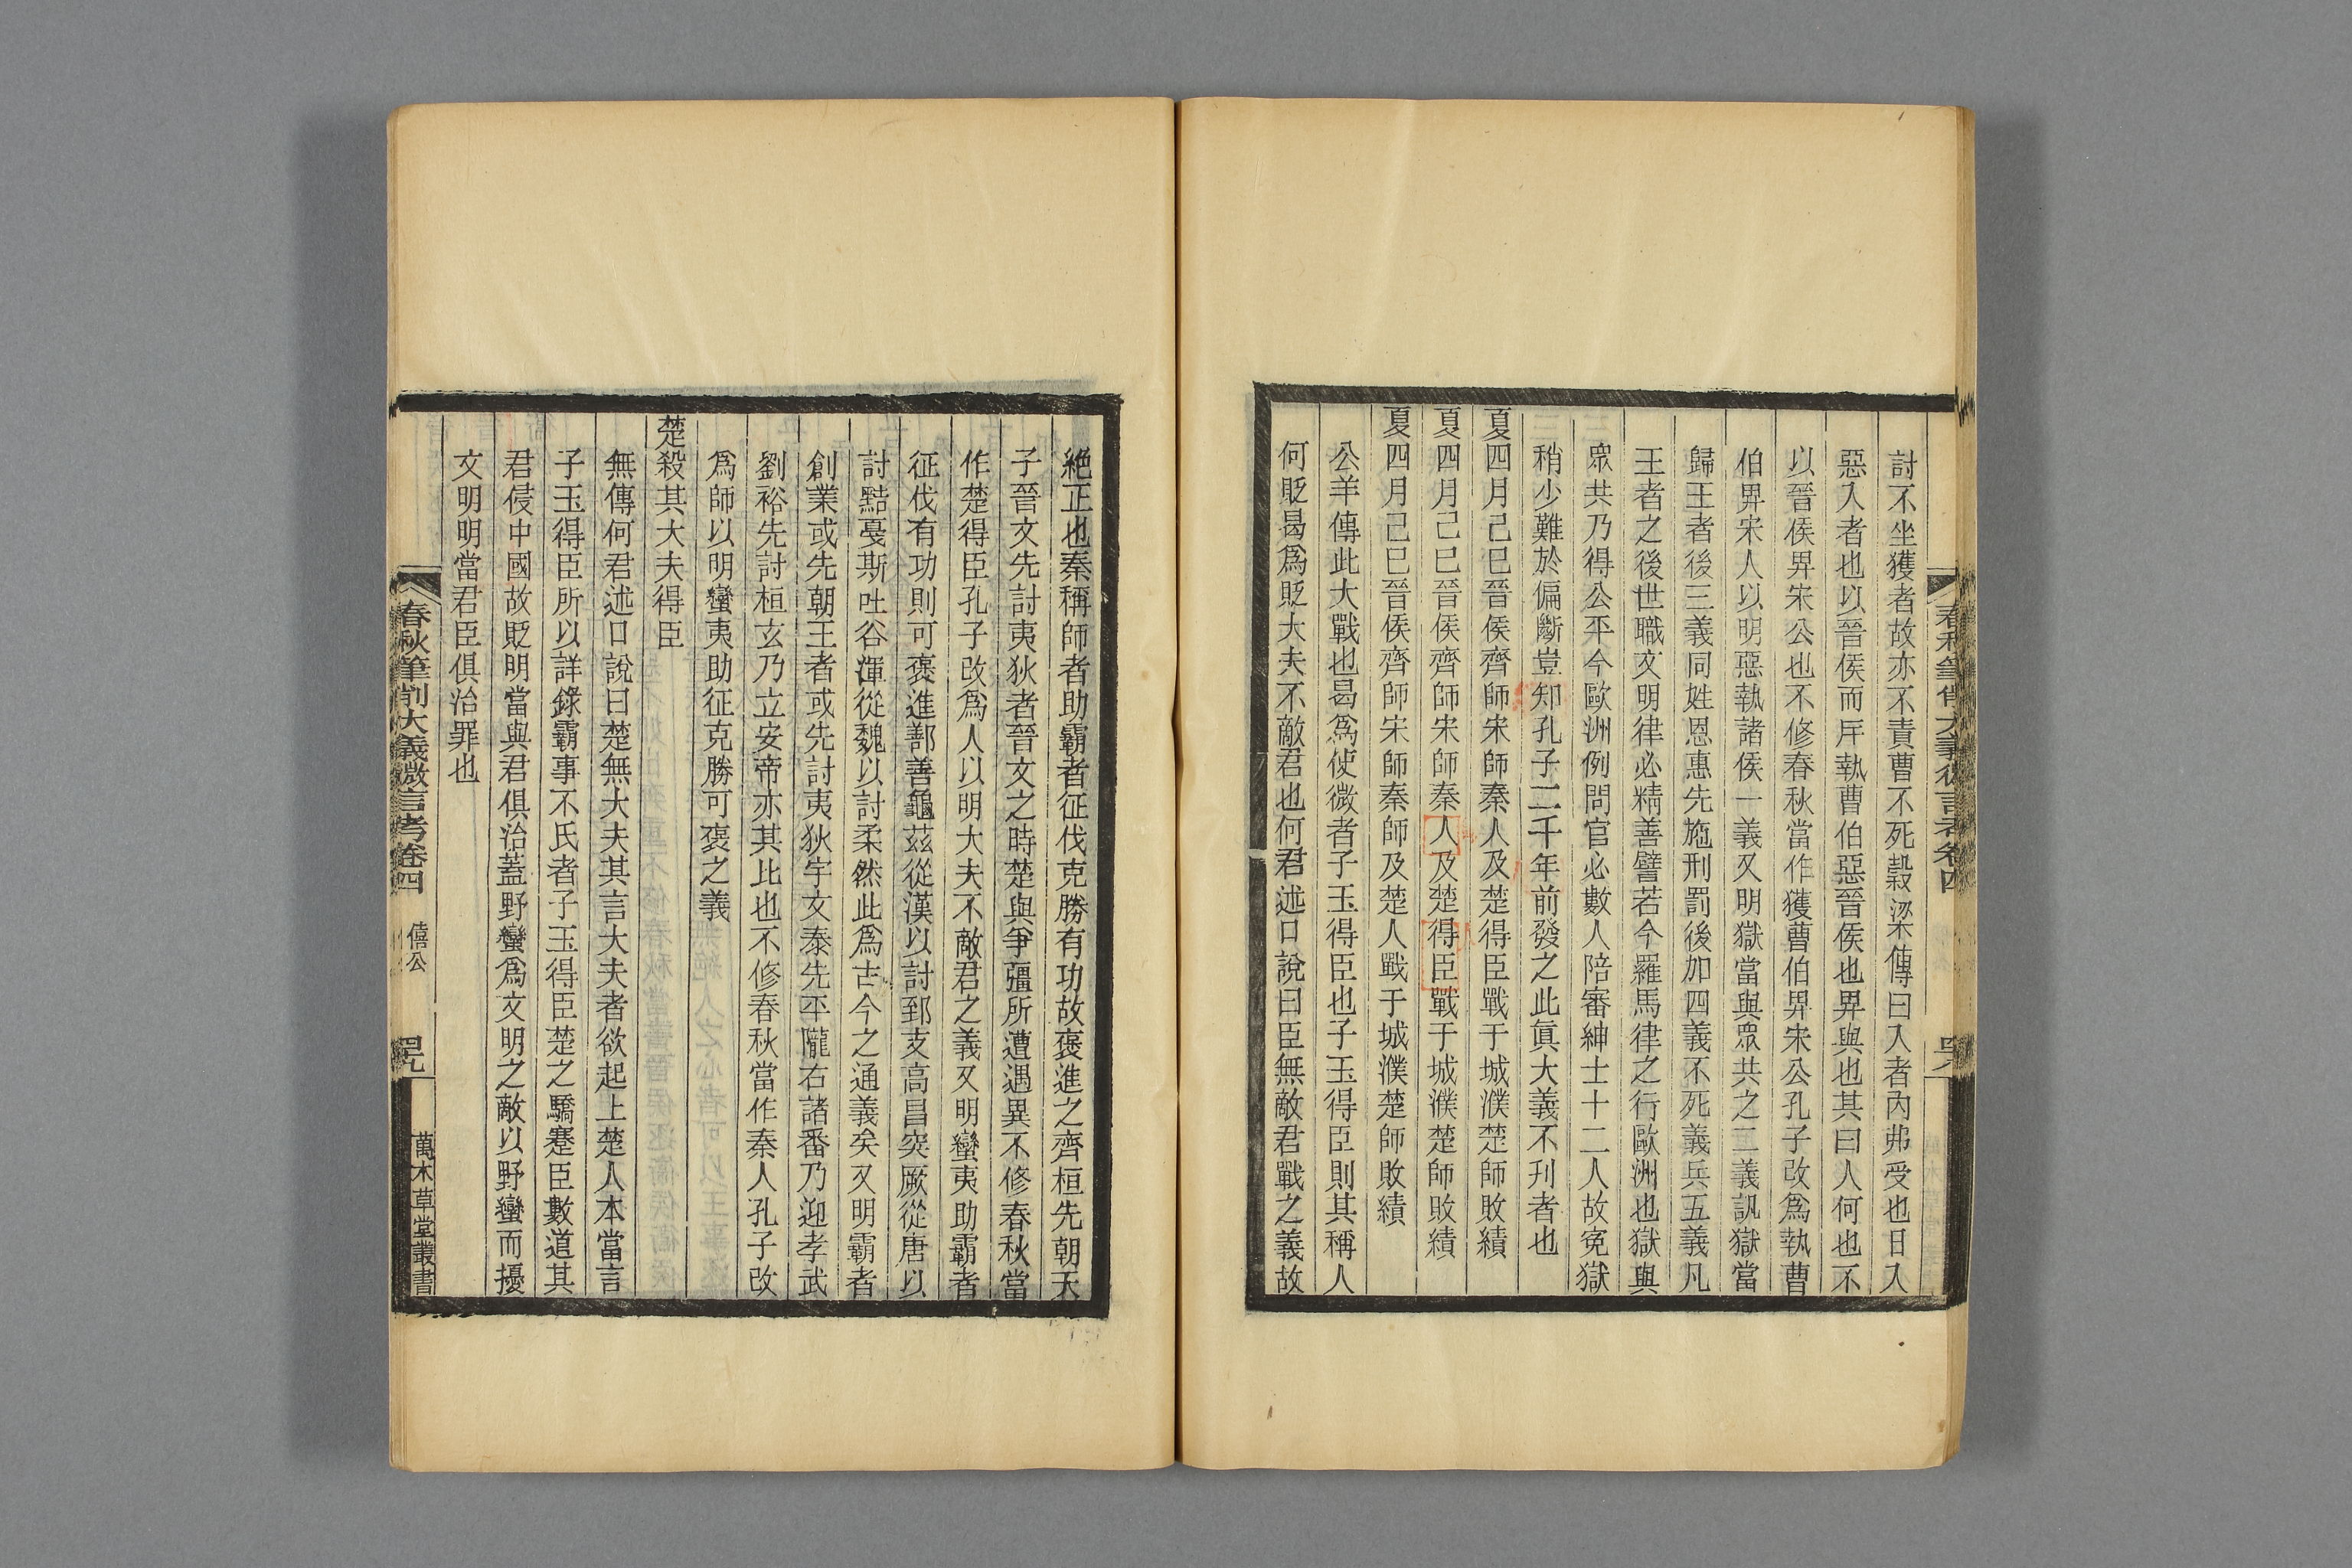 討不坐獲者故亦不責曹不死穀梁傳曰入者內弗受也日入
惡入者也以晉侯而斥執曹伯惡晉侯也畀與也其曰人何也不
以晉侯畀宋公也不修春秋當作獲曹伯畀宋公孔子改爲執曹
伯畀宋人以明惡執諸侯一義又明獄當與眾共之二義訊獄當
歸王者後三義同姓恩惠先施刑罰後加四義不死義兵五義凡
王者之後世職文明律必精善譬若今羅馬律之行歐洲也獄與
眾共乃得公平今歐洲例問官必數人陪審紳士十二人故冤獄
稍少難於偏斷豈知孔子二千年前發之此眞大義不刋者也
夏四月己巳晉侯齊師宋師秦人及楚得臣戰于城濮楚師敗績
夏四月己巳晉侯齊師宋師秦人及楚得臣戰于城濮楚師敗績
夏四月己巳晉侯齊師宋師秦師及楚人戰于城濮楚師敗績
公羊傳此大戰也曷爲使微者子玉得臣也子玉得臣則其稱人
何貶曷爲貶大夫不敵君也何君述口說曰臣無敵君戰之義故
絶正也秦稱師者助霸者征伐克勝有功故褒進之齊桓先朝天
子晉文先討夷狄者晉文之時楚與爭彊所遭遇異不修春秋當
作楚得臣孔子改爲人以明大夫不敵君之義又明蠻夷助霸者
征伐有功則可褒進鄯善龜茲從漢以討郅支高昌突厥從唐以
討黠戛斯吐谷渾從魏以討柔然此爲古今之通義矣又明霸者
創業或先朝王者或先討夷狄宇文泰先平隴右諸番乃迎孝武
劉裕先討桓玄乃立安帝亦其比也不修春秋當作秦人孔子改
爲師以明蠻夷助征克勝可褒之義
楚殺其大夫得臣
無傳何君述口說曰楚無大夫其言大夫者欲起上楚人本當言
子玉得臣所以詳錄霸事不氏者子玉得臣楚之驕蹇臣數道其
君侵中國故貶明當與君俱治蓋野蠻爲文明之敵以野蠻而擾
文明明當君臣俱治罪也
春秋筆削大義微言考卷四 僖公
萬木草堂叢書